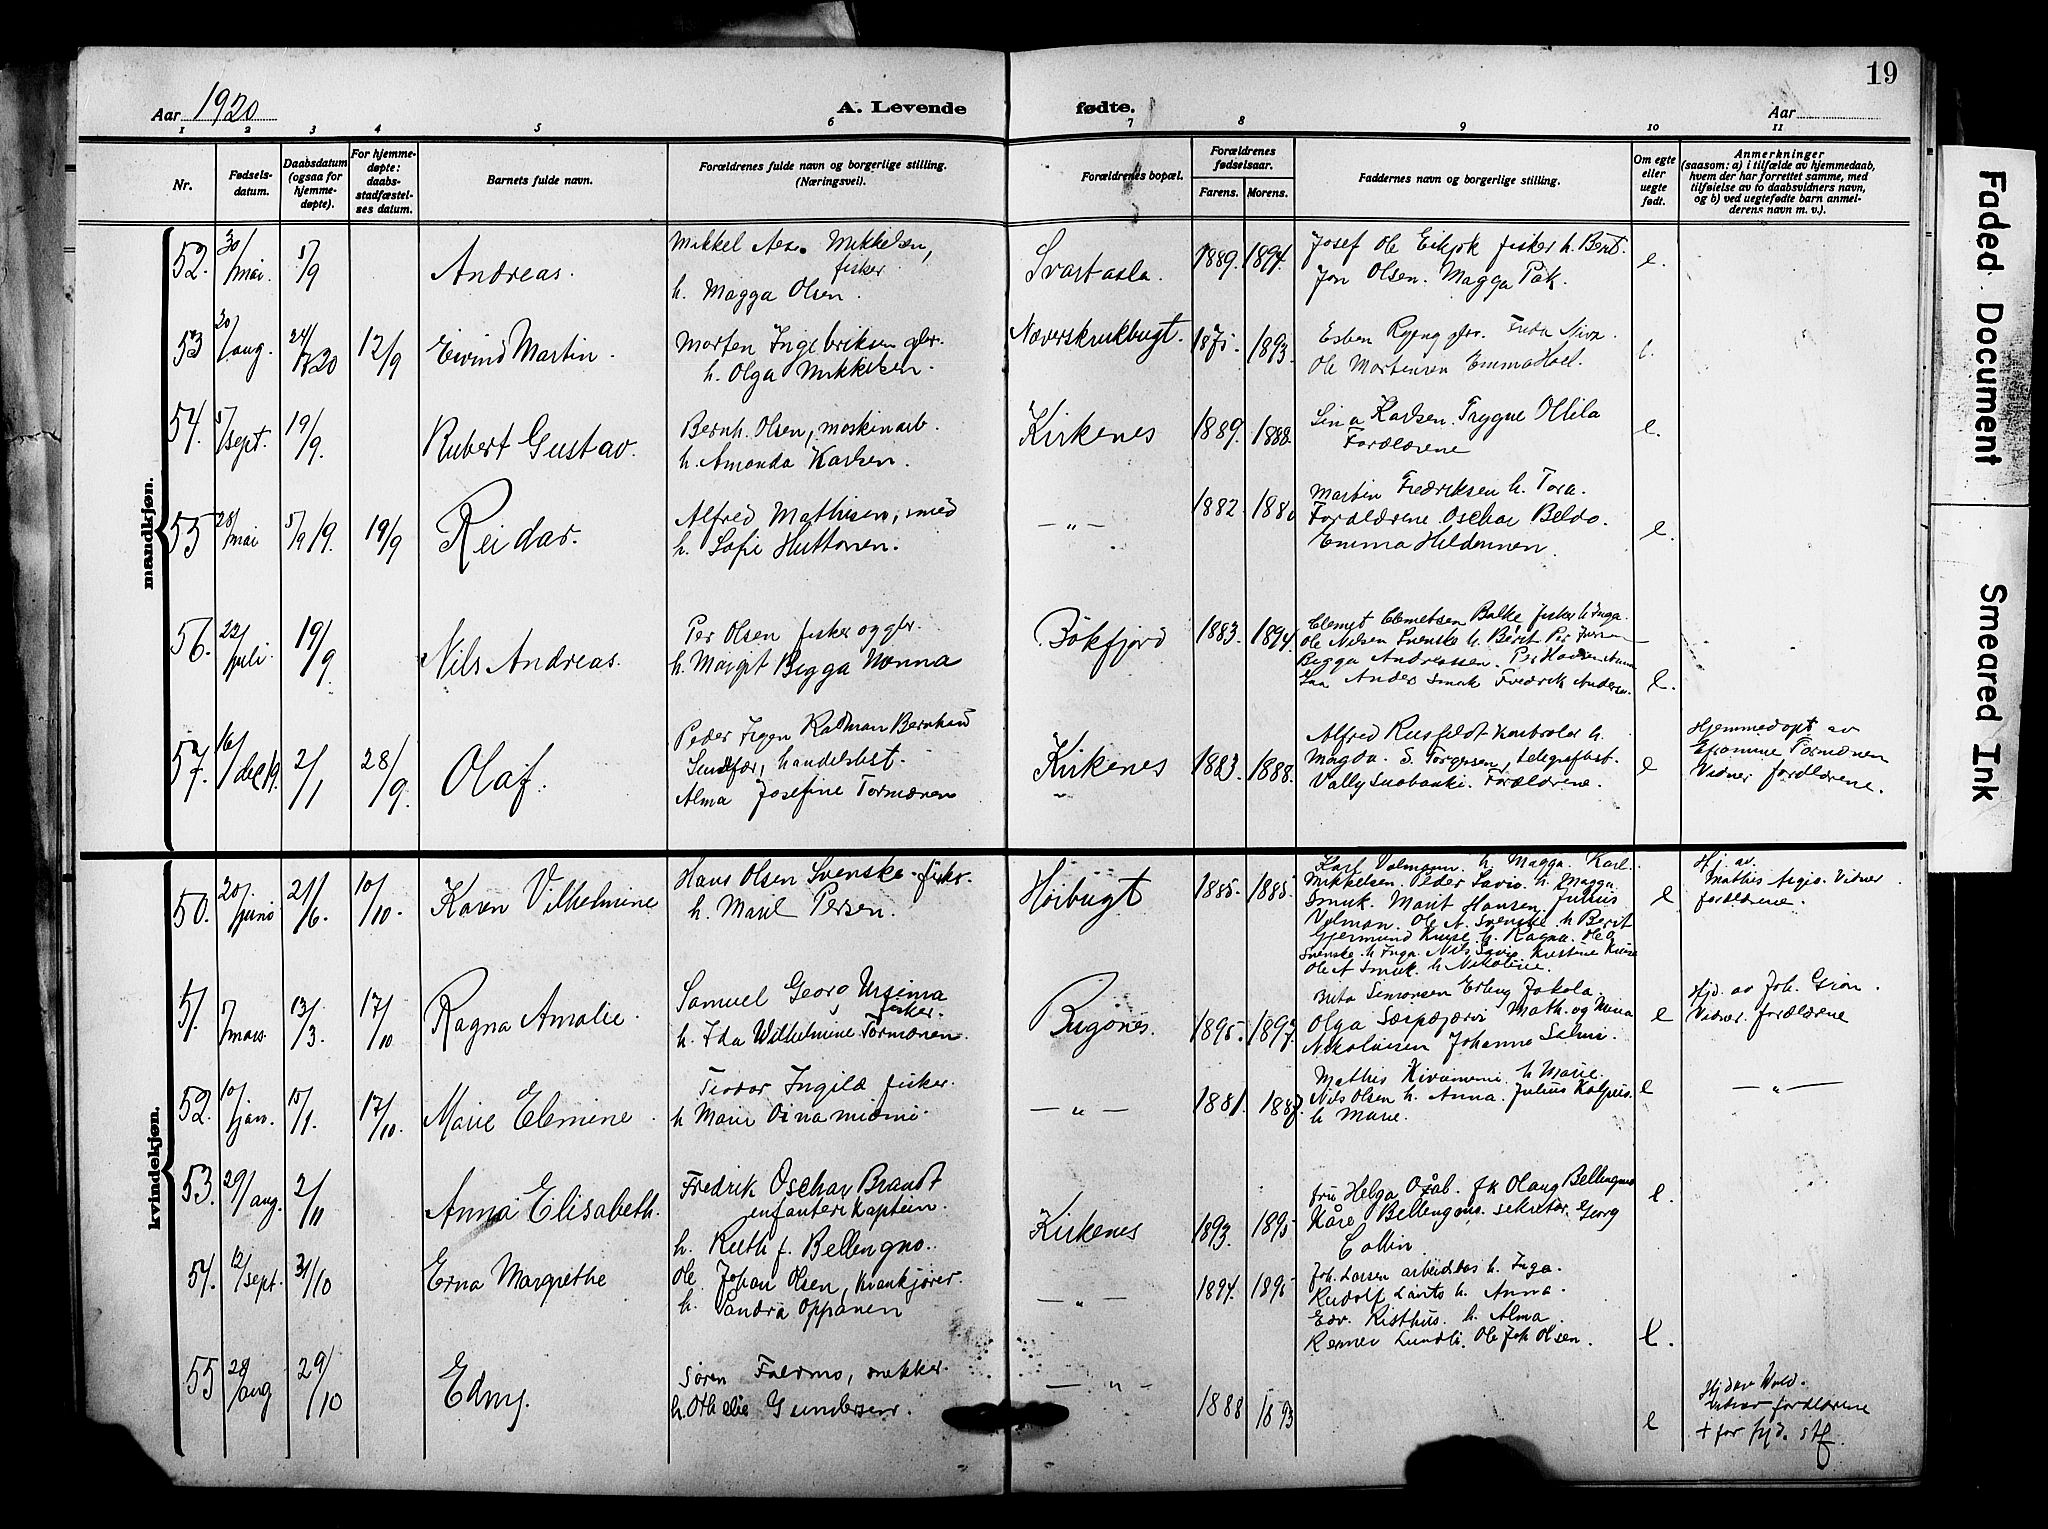 19
Aar 1920 A. Levende fødte. Aar
1 2 3 4 5 6 7 8 9 10 11
Nr.
Fødsels-
datum.
Daabsdatum
(ogsaa for
hjemme-
døpte).
For hjemme-
døpte:
daabs-
stadfæstel-
ses datum.
Barnets fulde navn.
Forældrenes fulde navn og borgerlige stilling.
(Næringsvei).
Forældrenes bopæl.
Forældrenes
fødselsaar.
Farens. Morens.
Faddernes navn og borgerlige stilling.
Om egte
eller
uegte
født.
Anmerkninger
(saasom: a) i tilfælde av hjemmedaab,
hvem der har forrettet samme, med
tilføielse av to daabsvidners navn,
og b) ved uegtefødte barn anmel-
derens navn m. v.).
mandkjøn.
52. 30/mai. 5/9 Andreas.
Mikkel Mikkelsen,
fisker
h. Magga Olsen.
1889. 1894.
Josef Ole fisker h. Berit.
Jon Olsen. Magga Pak.
e.
53 20/aug. 12/9 Eivind Martin.
Morten Ingebriksen gbr.
h. Olga Mikkelsen.
Næverskrukbugt. 1893.
Esben gbr. Frida
Ole Mortensen Emma
54. 5/sept. 19/9. Rubert Gustav.
Bernh. Olsen, maskinarb.
h. Amanda Karlsen.
Kirkenes 1889. 1888.
Lina Karlsen. Trygve
Forældrene
e.
55 28/mai 5/9 19. 19/9 Reidar.
Alfred Mathisen, smed
h. Sofie Huttonen.
— " — 1882.
Martin Fredriksen h. Tora.
Forældrene. Oschar Beldo.
Emma
e.
56. 22/juli. 19/9 Nils Andreas.
Per Olsen fisker og gbr.
h. Margit Bigga Nonna
Bökfjord 1883. 1894.
Clemet Clemetsen fisker h. Inga.
Ole Nilsen Svenske h. Berit
Bigga Andreassen.
Anders Smuk Fredrik Anders.
e.
57. 16/dec 19. 2/1 28/9. Olaf.
Peder Bernhard
handelsbest.
Alma Josefine Tormænen
Kirkenes 1883. 1888.
Alfred Rusfeldt kontrolør h.
Magda. S. Torgersen, telegrafbest.
Vally Forældrene.
e
Hjemmedöpt av
Tormænen
Vidner forældrene.
kvindekjøn.
50. 20/juni 21/6. 10/10. Karen Vilhelmine
Hans Olsen Svenske. fisker.
h. Marit Persen.
1885. 1885.
Karl h. Magga. Karl
Mikkelsen. Peder Savio. h. Magga
Smuk. Marit Hansen. Julius
Ole A. Svenske h. Berit
Gjermund Kruse. h. Ragna. Ole O
Svenske. h. Inga. Nils Savio Kristine Kruse
Ole A Smuk. h. Nikoline.
e
Hj. av
Mathis Vidner
forældrene.
51. 5/mars. 13/3. 17/10 Ragna Amalie.
Samuel Georg
fisker.
h. Ida Wilhelmine Tormænen.
Bugönes. 1895. 1897.
Simonsen Erling Jakola.
Olga Math. og Mina
Nikolaisen Johanne Salmi.
e
Hjd. av Joh.
Vidner. forældrene
52. 10/jan. 15/1. 17/10. Marie Elemine.
Teodor Ingilæ fisker.
h Marie
— " — 1881. 1887.
Mathis h Marie.
Nils Olsen h. Anna. Julius
h Marie.
e
— " —
53. 29/aug. 2/11 Anna Elisabeth.
Fredrik Oschar Brandt
infanterikaptein.
h. Ruth f. Bellengno.
Kirkenes 1893. 1895
fru Helga fk Olaug Bellengno
Kåre Bellengno. sekretær. Georg
Collin
e.
54. 12/sept. 31/10 Erna Margrethe
Ole Johan Olsen, krankjører.
h. Sandra Oppanen
— " — 1894. 1895
Joh. Larsen arbeidsbas h. Inga.
Rudolf h. Anna.
Edv. h. Alma
Reiner Lundli. Ole Joh Olsen.
e.
55 28/aug 29/10 Edny.
Sören Falsmo, snekker.
h. Gundersen.
— " — 1888 1893
e
forældrene
+ før hjd. stf.
Faded Document
Smeared Ink